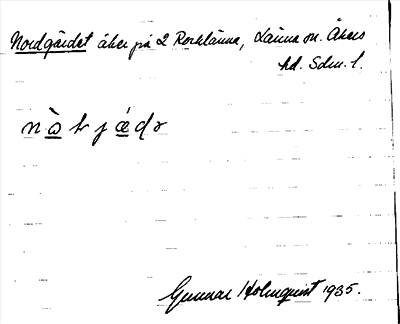 Nordgärdet åker på 2 Rorklänna, Länna sn. Åkers
hd. Sdm. l.
Gunnar Holmquist 1935.